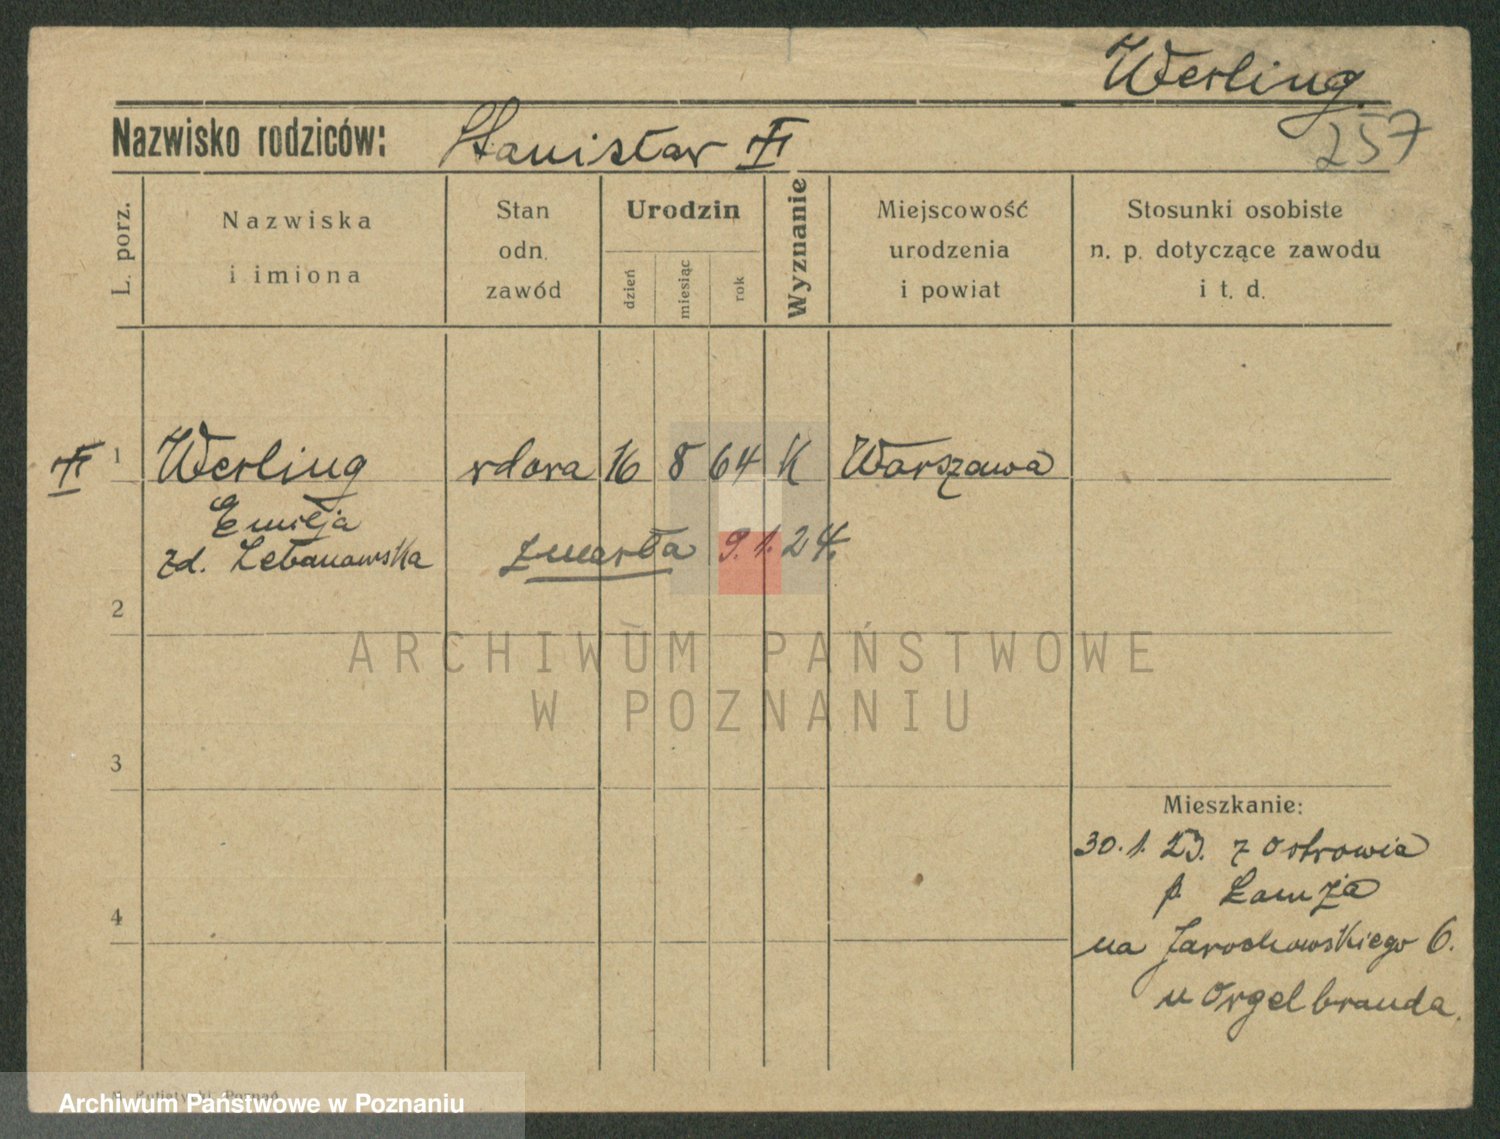 Werling
257
Nazwisko rodziców: Stanisław
L. porz.
Nazwiska
i imiona
Stan
odn.
zawód
Urodzin
dzień
miesiąc
rok
Wyznanie
Miejscowość
urodzenia
i powiat
Stosunki osobiste
n. p. dotyczące zawodu
i t. d.
1 Werling wdowa 16 8 64 K Warszawa
Emilja
zd. Lebanowska
zmarła 9.1.24.
2
ARCHIWUM PAŃSTWOWE
W POZNANIU
3
Mieszkanie:
30.1.23. z Ostrowia
p Łomża
4
na Jarochowskiego 6.
u Orgelbranda.
Poznań
Archiwum Państwowe w Poznaniu